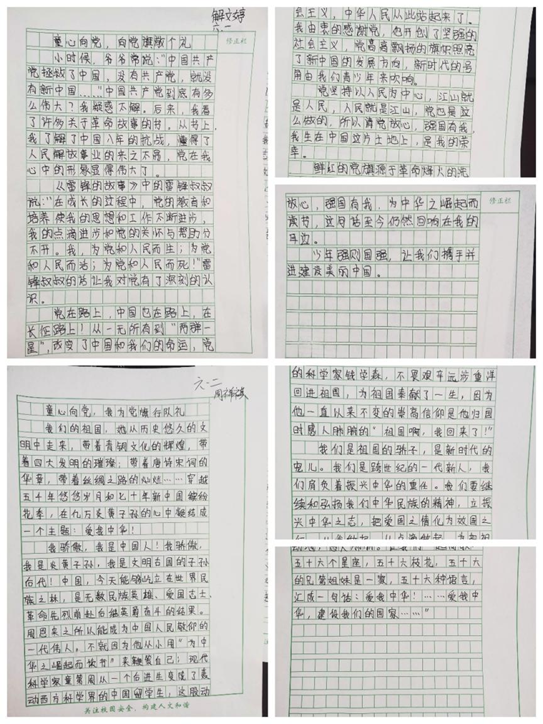 解文婷
六.一
修正栏
童心向党，向党旗敬个礼
小时候，爷爷常说："中国共产
党拯救了中国，没有共产党，就没
有新中国……"中国共产党到底有多
么伟大？我疑惑不解。后来，我看
了许多关于革命故事的书，从书上，
我了解了中国八年的抗战，懂得了
人民解放事业的来之不易，党在我
心中的形象显得伟大了。
从《雷锋的故事》中的雷锋叔叔
说："在成长的过程中，党的教育和
培养使我的思想和工作不断进步，
我的点滴进步和党的关怀与帮助分
不开。我，为党和人民而生；为党
和人民而活；为党和人民而死！"雷
锋叔叔的话让我对党有了深刻的认
识。
党在路上，中国也在路上，在
长征路上！从一无所有到"两弹一
星"，改变了中国和我们的命运，党
会主义，中华人民从此站起来了。
我由衷的感谢党，也开创了坚强的
社会主义，党高高飘扬的旗帜照亮
了新中国的发展方向，新时代的号
角由我们青少年来吹响。
党坚持以人民为中心，江山就
是人民，人民就是江山，党也是这
么做的，所以请党放心，强国有我，
我生在中国这方土地上，是我的荣
幸。
鲜红的党旗源于革命烽火的洗
修正栏
放心，强国有我，为中华之崛起而
读书，这句话至今仍然回响在我的
耳边。
少年强则国强，让我们携手并
进建设美丽中国。
六.二
童心向党，我为党旗行队礼
我们的祖国，他从历史悠久的文
明中走来，带着青铜文化的辉煌，带
着四大发明的璀璨；带着唐诗宋词的
华章，带着丝绸之路的灿烂……穿越
五千年悠悠岁月如七十年新中国缤纷
花季，在九万炎黄子孙的心中凝结成
一个主题：爱我中华！
我骄傲，我是中国人！我骄傲，
我是炎黄子孙，我是文明古国的子孙
后代！中国，今天能够屹立在世界民
族之林，是无数民族英雄、爱国志士、
革命先烈前赴后继英勇奋斗的结果。
周恩来之所以能成为中国人民敬仰的
一代伟人，不就因为他从小用"为中
华之崛起而读书"来鞭策自己；现代
科学家童第周从一个后进生变成了轰
动西方科学界的中国留学生，这股动
关注校园安全，构建人文和谐
的科学家钱学森，不畏艰辛远涉重洋
回进祖国，为祖国奉献了一生，因为
他一直以来不变的崇高信仰是他归国
时感人肺腑的"祖国啊，我回来了！"
我们是祖国的骄子，是新时代的
宠儿。我们是跨世纪的一代新人，我
们肩负着振兴中华的重任。我们要继
续和弘扬我们中华民族的精神，立振
兴中华之志，把爱国之情化为效国之
五十六个星座，五十六枝花，五十六
的兄弟姐妹是一家，五十六种语言，
汇成一句话：爱我中华！……爱我中
华，建设我们的国家……"